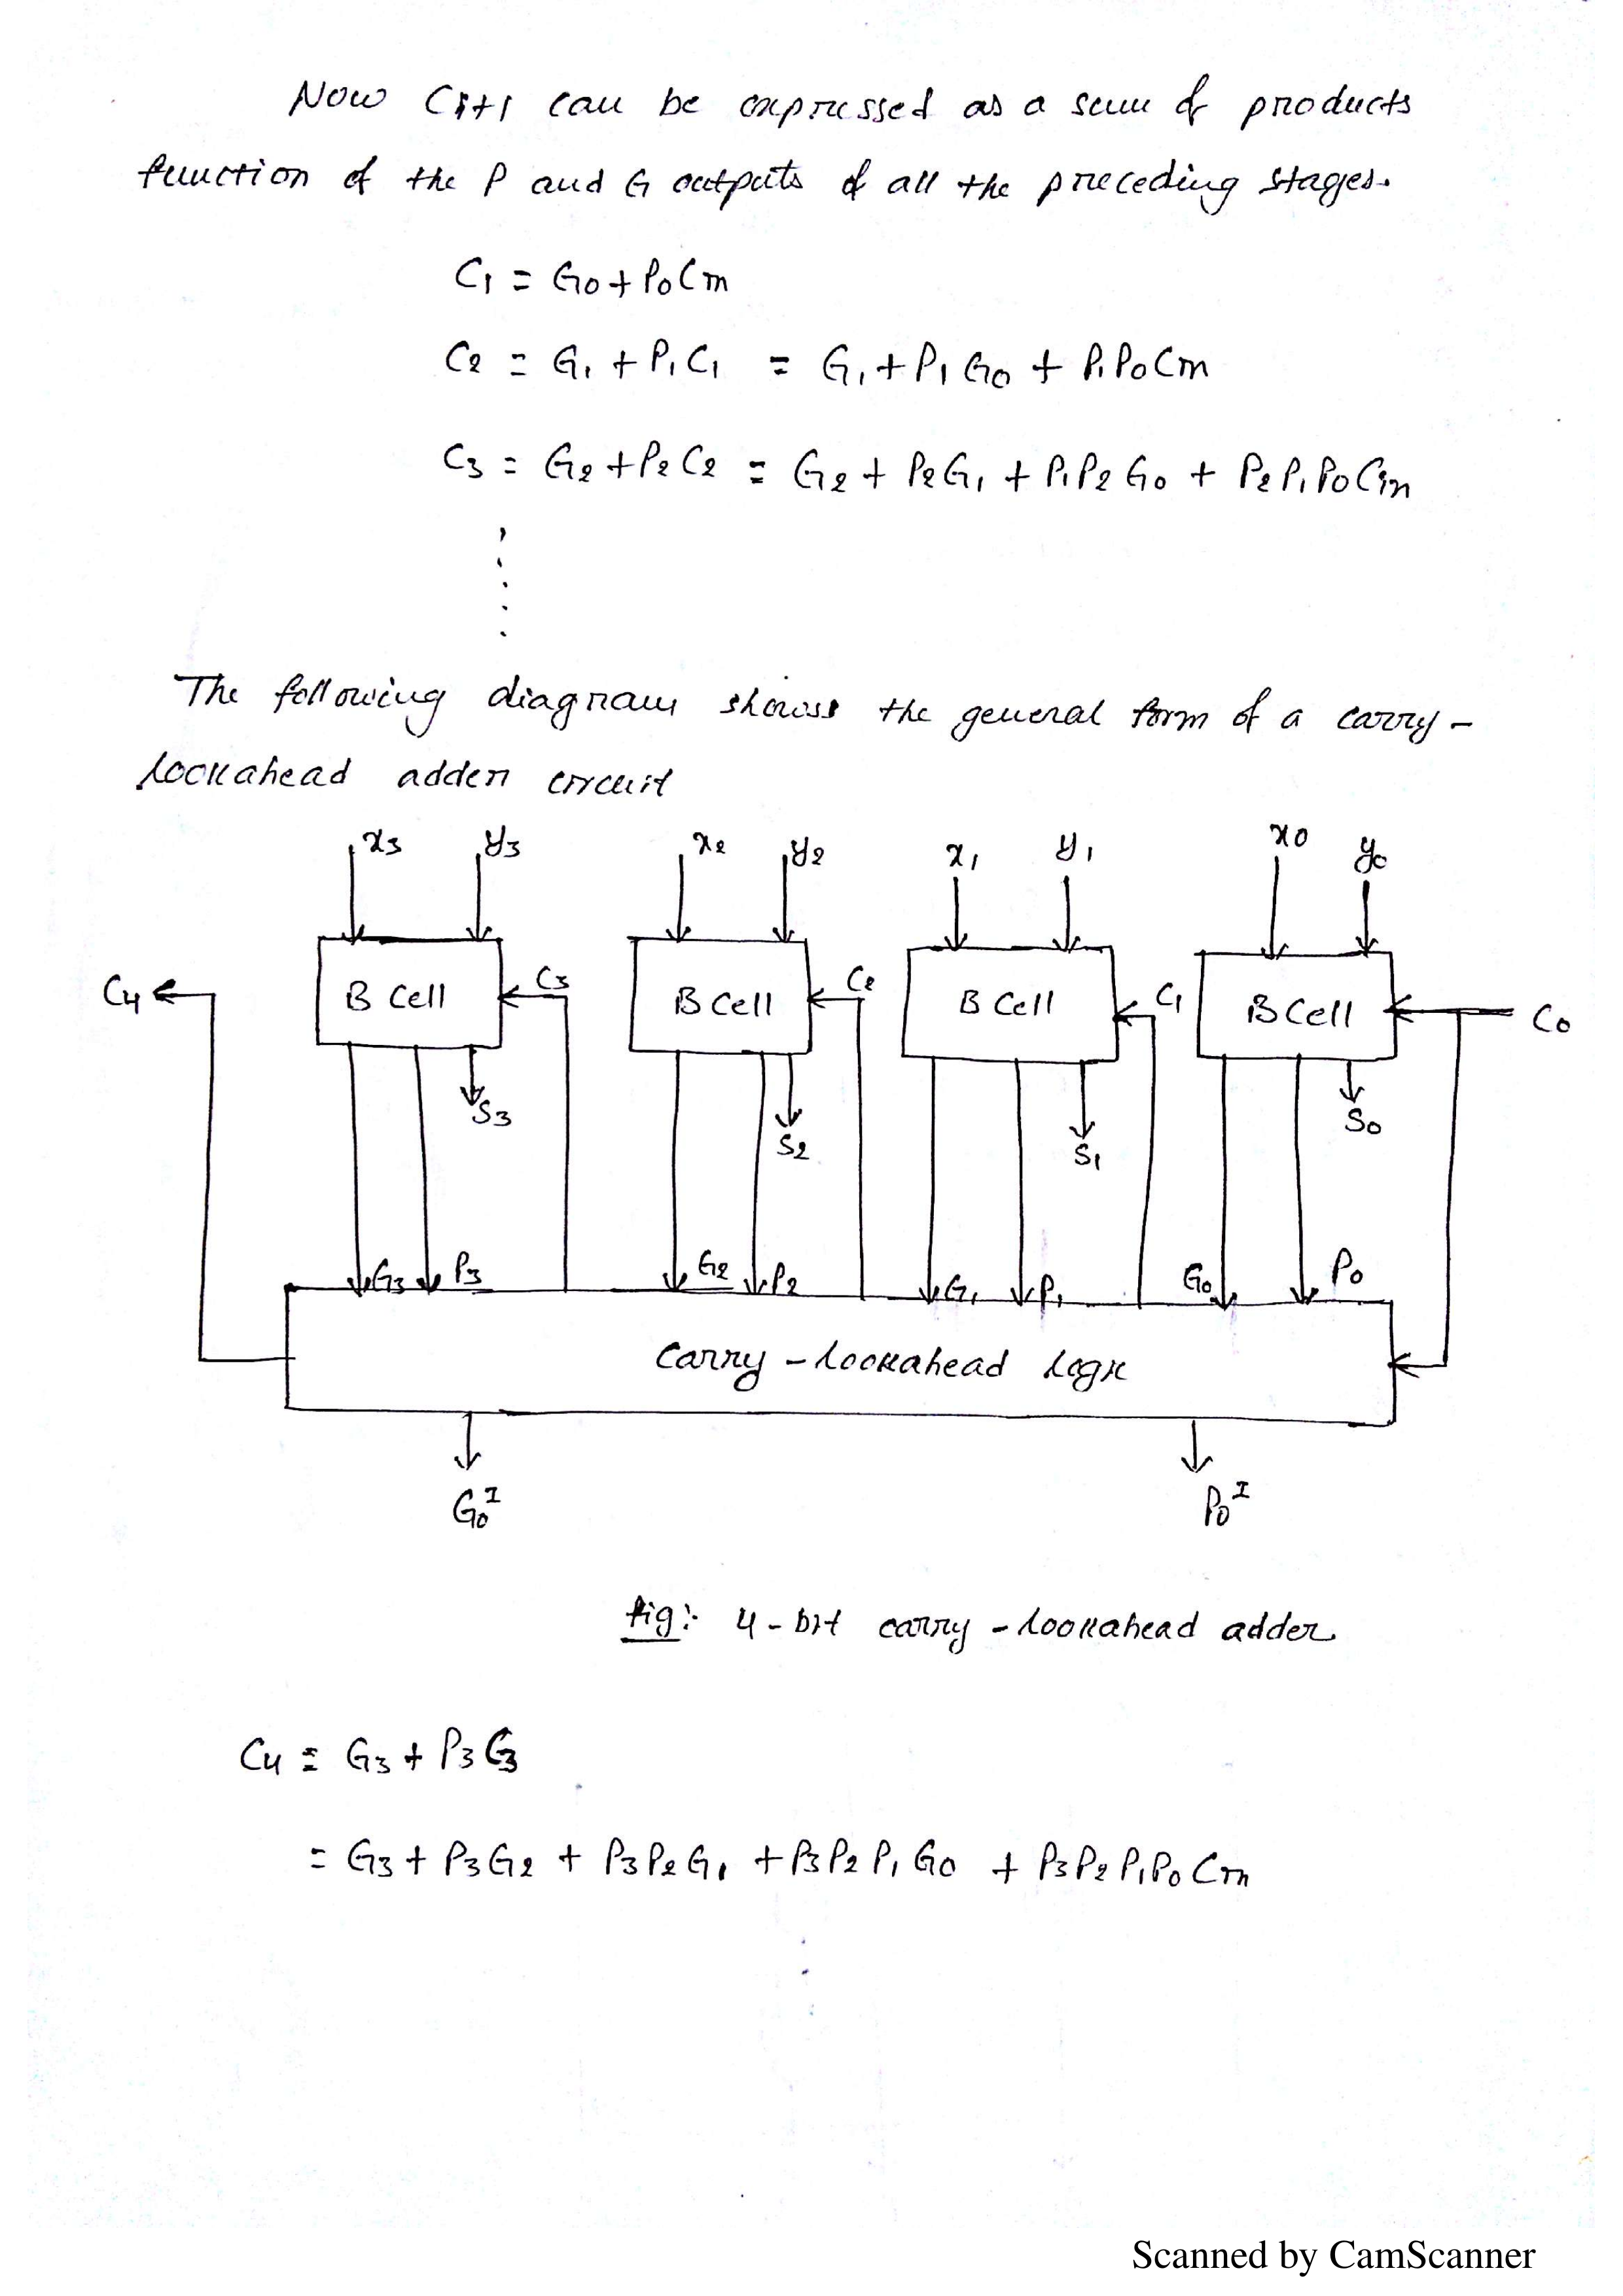 Now Ci+1 can be expressed as a sum of products
function of the P and G outputs of all the preceding stages.
C1 = G0 + P0 Cin
C2 = G1 + P1 C1 = G1 + P1 G0 + P1 P0 Cin
C3 = G2 + P2 C2 = G2 + P2 G1 + P1 P2 G0 + P2 P1 P0 Cin
The following diagram shows the general form of a carry-
lookahead adder circuit
x3 y3 x2 y2 x1 y1 x0 y0
C4 B Cell C3 B Cell C2 B Cell C1 B Cell C0
S3 S2 S1 S0
G3 P3 G2 P2 G1 P1 G0 P0
Carry-lookahead logic
G0^I P0^I
fig: 4-bit carry-lookahead adder
C4 = G3 + P3 C3
= G3 + P3 G2 + P3 P2 G1 + P3 P2 P1 G0 + P3 P2 P1 P0 Cin
Scanned by CamScanner